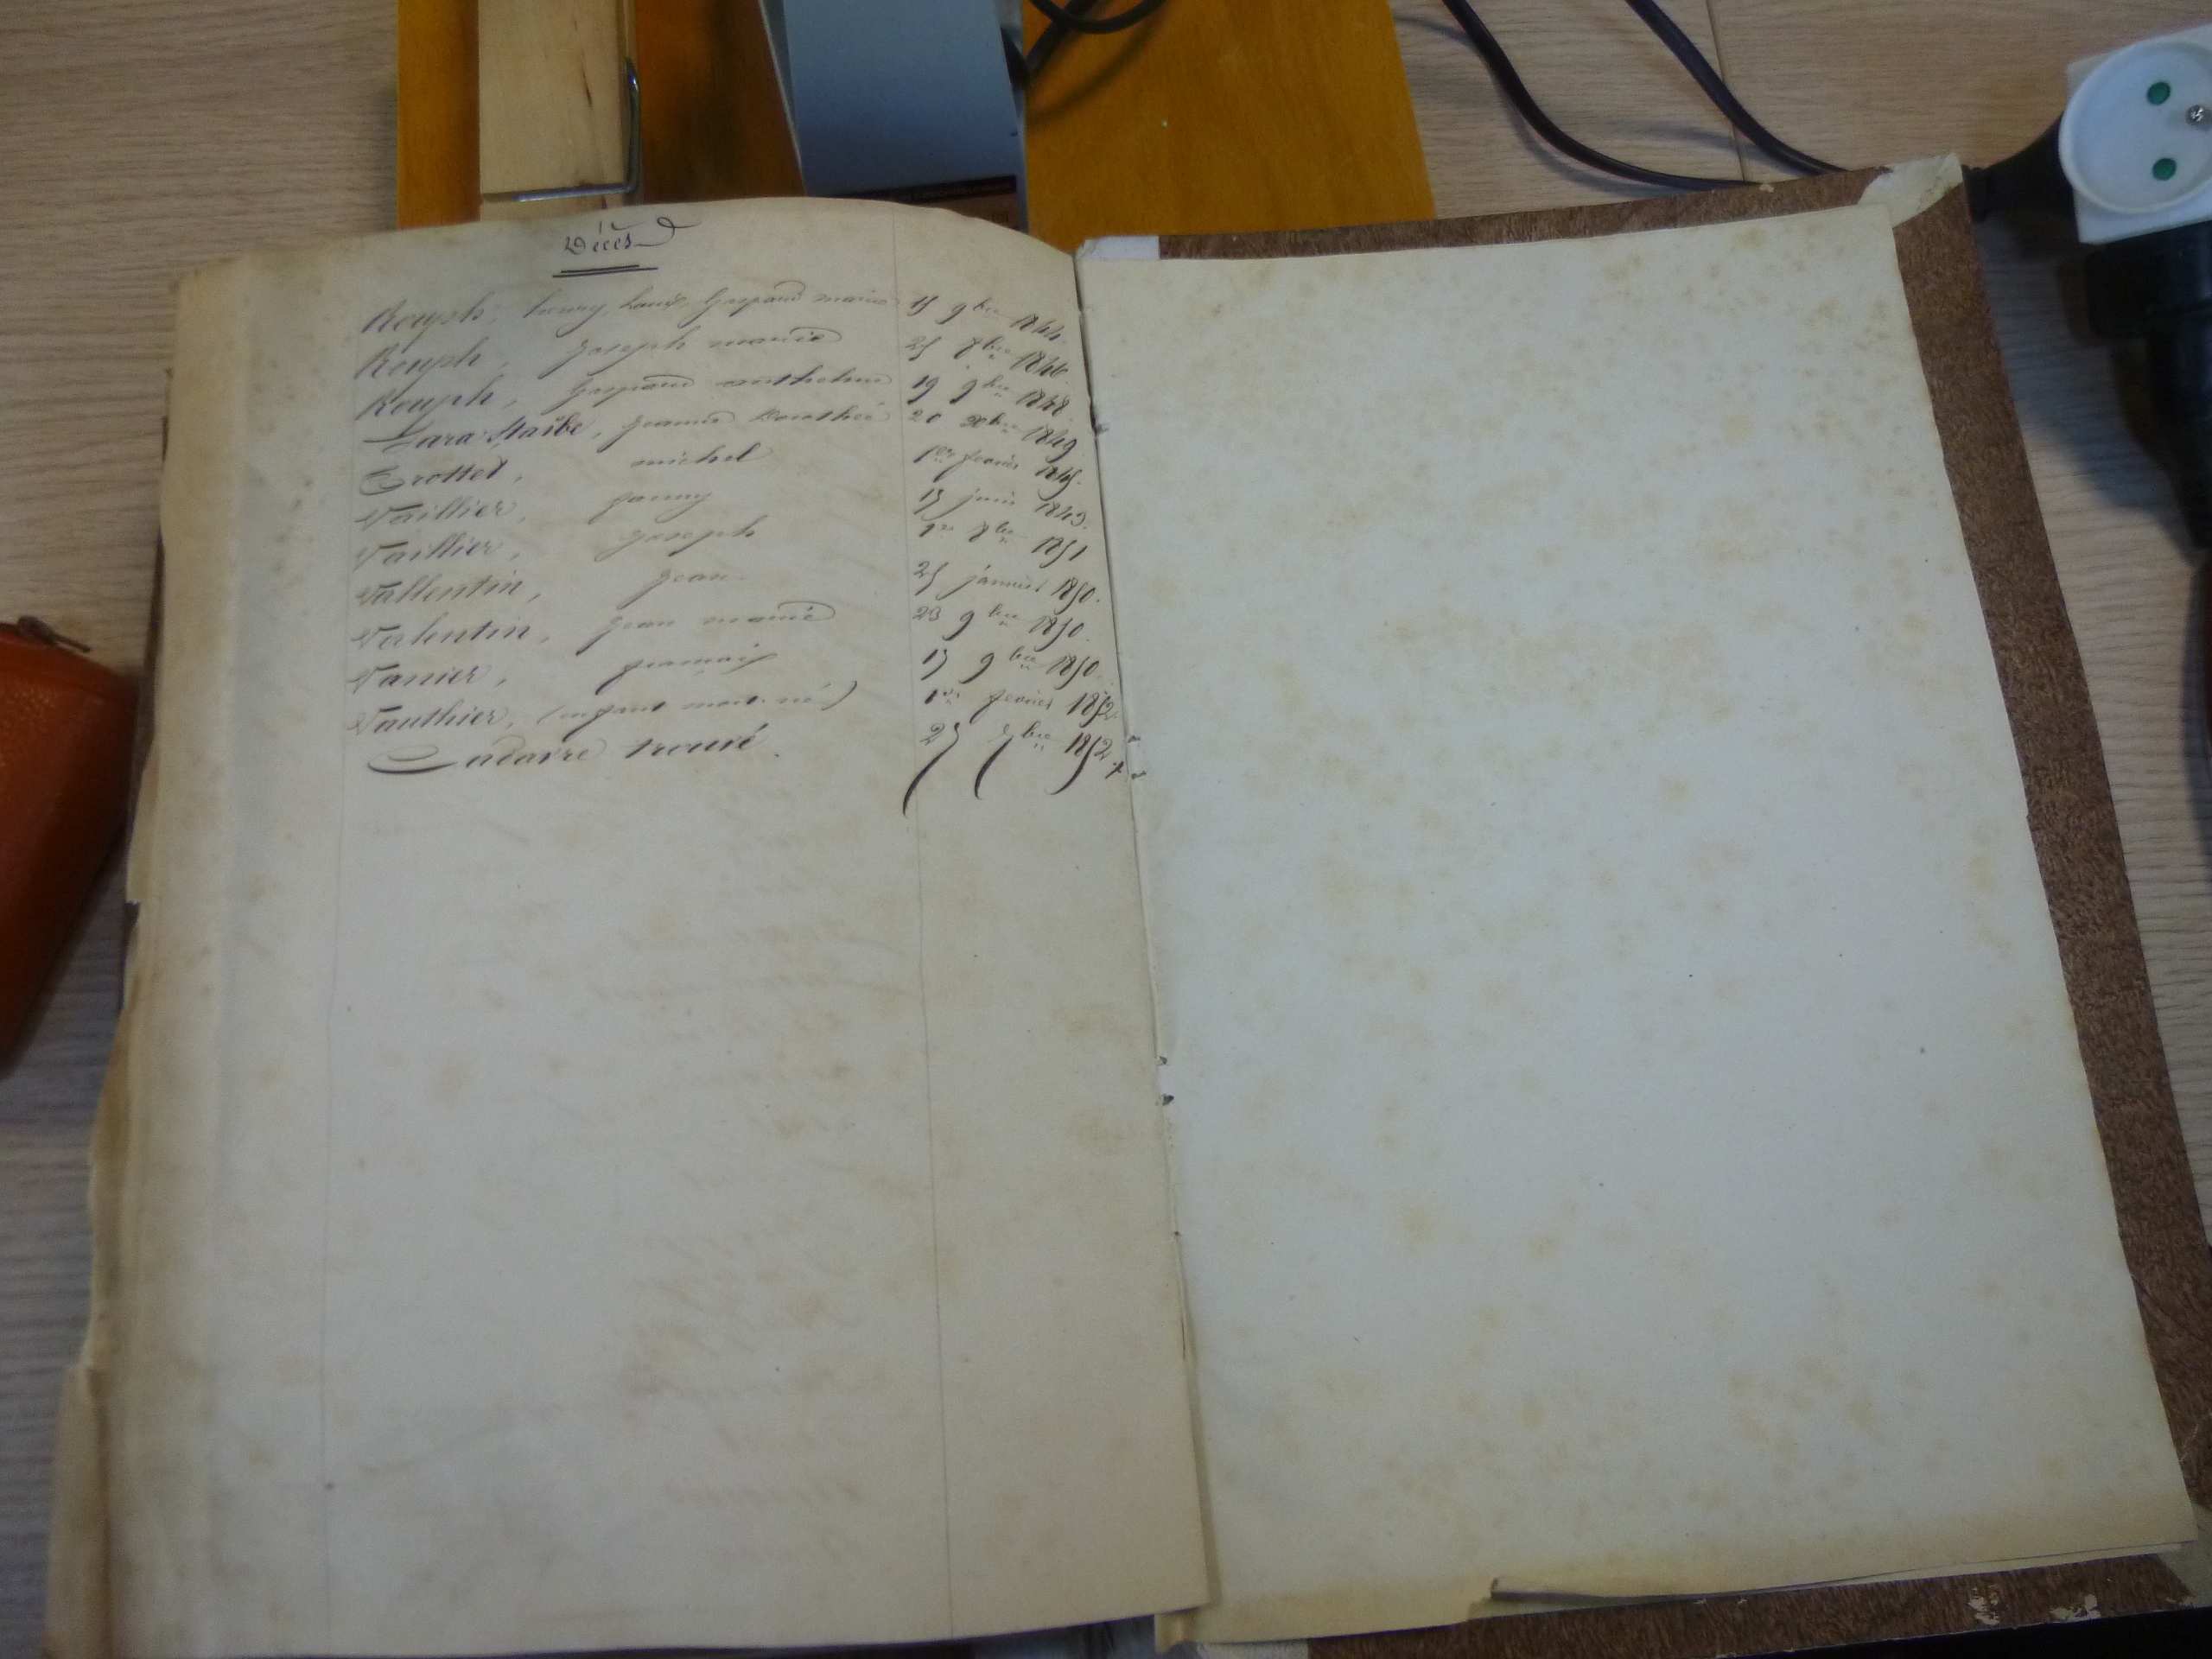 Décès
Rouph, henry, Louis, Gaspard marie 15 9bre 1844.
Rouph, Joseph marie 25 8bre 1846.
Rouph, Gaspard anthelme 19 9bre 1848.
Sara Staïbe, Jeanne Dorothée 20 xbre 1849
Trottet, michel 1er fevrier 1845.
Vaillier, fanny 15 juin 1849.
Vaillier, Joseph 1er 8bre 1851
Vallentin, Jean 25 janvier 1850.
Valentin, Jean marie 23 9bre 1850.
Vanier, françois 15 9bre 1850.
Vauthier, (enfant mort-né) 1er fevrier 1852.
Cadavre trouvé. 25 7bre 1852.